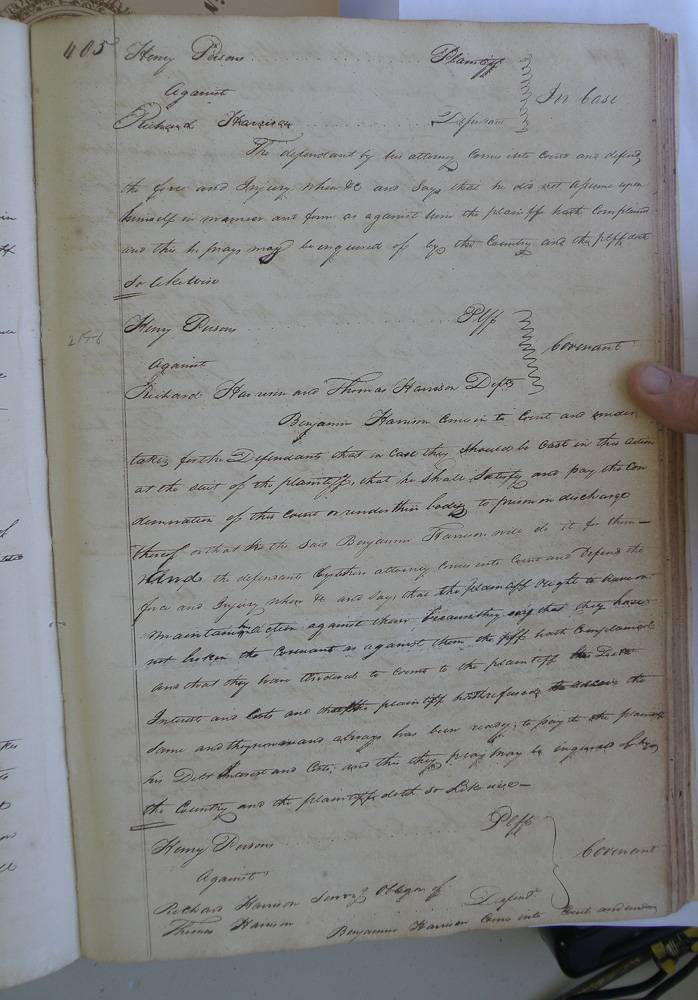 405
Henry Persons Plaintiff
Against In Case
Richard Harrison Defendant
The defendant by his attorney Comes into Court and defends
the force and Injury when &c and Says that he did not assume upon
himself in manner and form as against him the plaintiff hath Complained
and this he prays may be enquired of by the Country and the plff doth
So likewise
Henry Persons Plff
Against Covenant
Richard Harrison and Thomas Harrison Defts
Benjamin Harrison Come in to Court and under
takes for the Defendants that in Case they Should be Cast in this action
at the suit of the plaintiff, that he Shall Satisfy and pay the Con
demnation of this Court or render their bodies to prison on discharge
thereof or that he the said Benjamin Harrison will do it for them —
And the defendants by their attorney Comes into Court and Defend the
force and Injury when &c and Say, that the plaintiff Ought to have or
maintain action against them because they say that they have
not broken the Covenant as against them the plff hath Complained
and that they have tendered to Court to the plaintiff Debt
Interest and Costs and the plaintiff hath refused the
Same and they now and always has been ready to pay to the plaintiff
his Debt Interest and Costs, and this they pray may be inquired of by
the Country and the plaintiff doth so Likewise —
Henry Persons Plff
Against Covenant
Richard Harrison Survg Obligor of Defend.
Thomas Harrison Benjamin Harrison Comes into Court and under